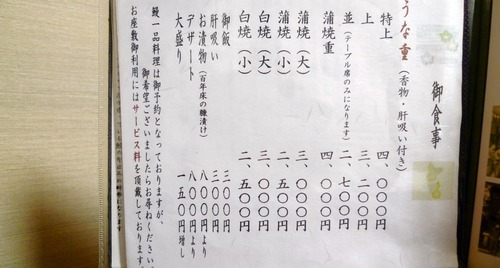 御食事
うな重（香物・肝吸い付き）
特上 四、〇〇〇円
上 三、二〇〇円
並（テーブル席のみになります） 二、七〇〇円
蒲焼重 四、〇〇〇円
蒲焼（大） 三、〇〇〇円
蒲焼（小） 二、五〇〇円
白焼（大） 三、〇〇〇円
白焼（小） 二、五〇〇円
御飯 三〇〇円
肝吸い 三〇〇円
お漬物（百年床の糠漬け） 八〇〇円より
デザート 八〇〇円より
大盛り 一五〇円増し
鰻一品料理は御予約となっておりますが、
御希望ございましたらお尋ねください
お座敷御利用にはサービス料を頂戴しております